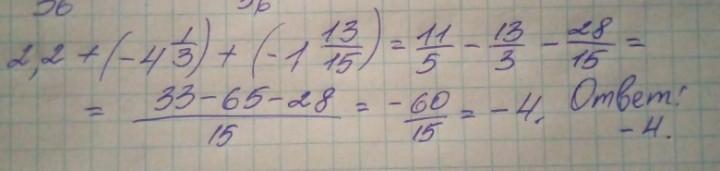 2,2 + (-4 1/3) + (-1 13/15) = 11/5 - 13/3 - 28/15 =
= (33-65-28)/15 = -60/15 = -4. Ответ: -4.